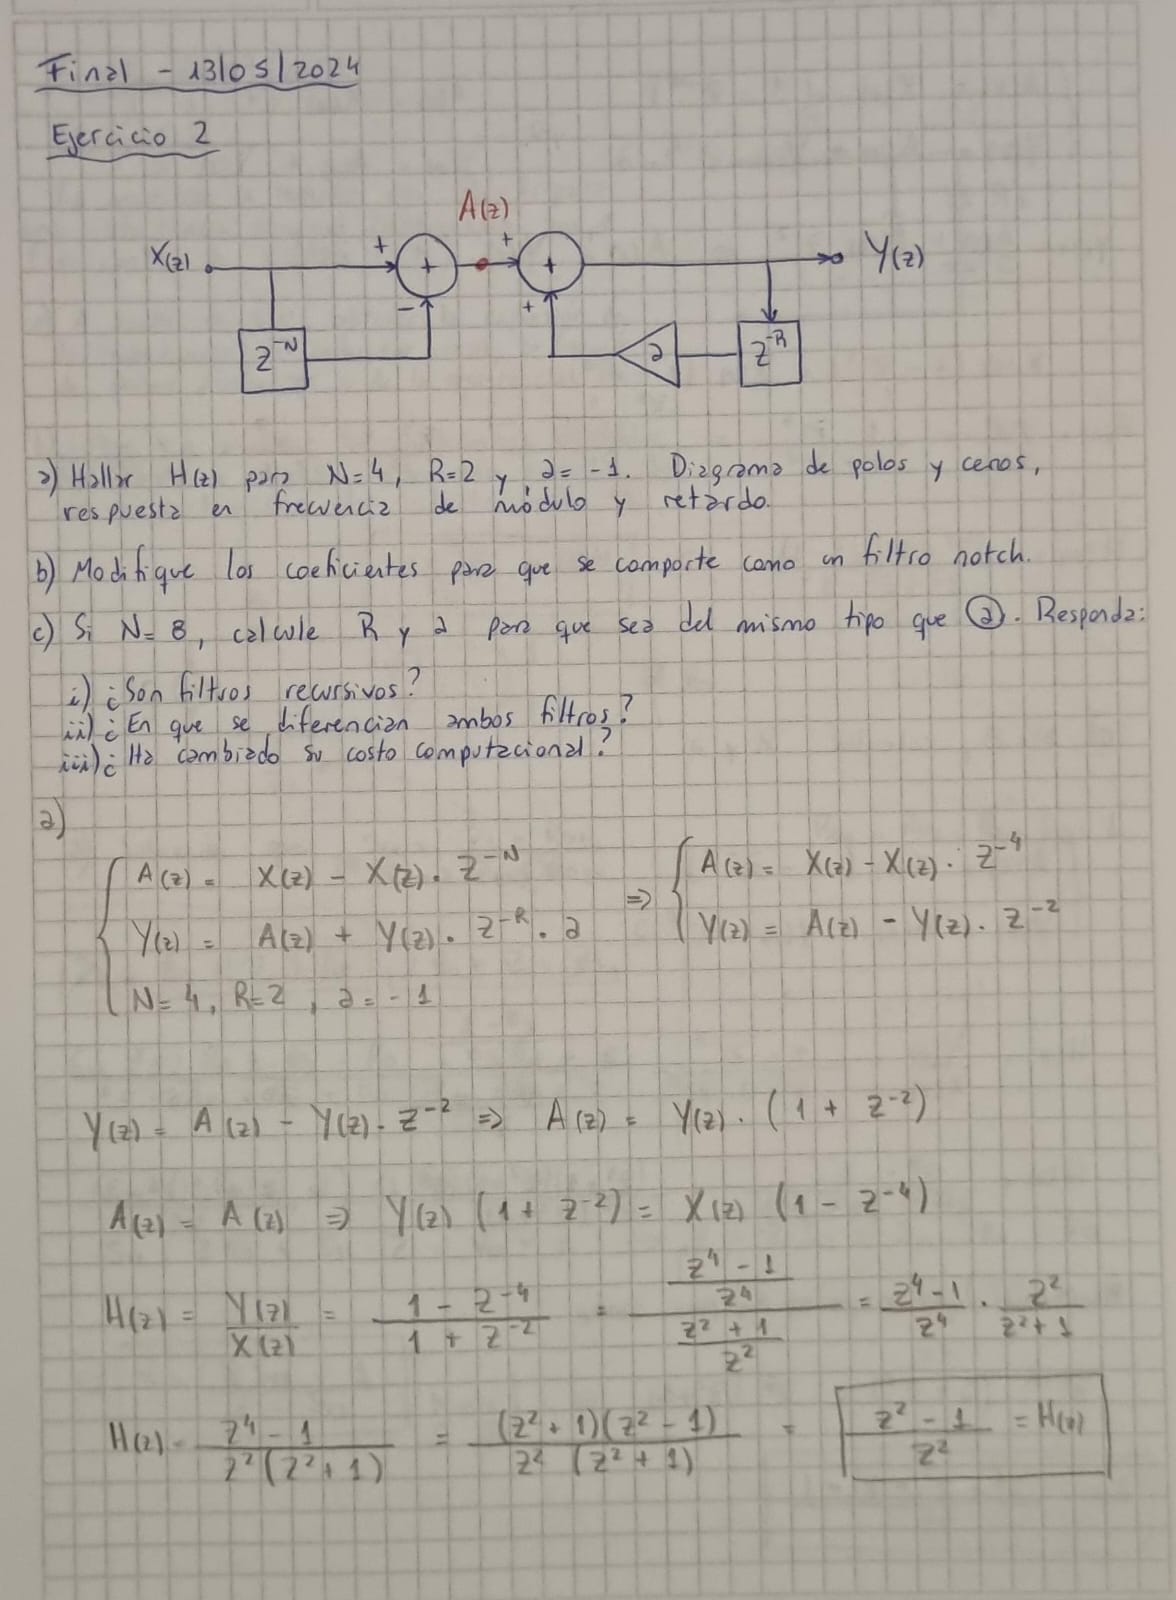 Final - 13/05/2024
Ejercicio 2
A(z)
X(z) + + - + + + Y(z)
z^-N a z^-R
a) Hallar H(z) para N=4, R=2 y a= -1. Diagrama de polos y ceros,
respuesta en frecuencia de módulo y retardo.
b) Modifique los coeficientes para que se comporte como un filtro notch.
c) Si N= 8, calcule R y a para que sea del mismo tipo que (a). Responda:
i) ¿Son filtros recursivos?
ii) ¿En que se diferencian ambos filtros?
iii) ¿Ha cambiado su costo computacional?
a)
{ A(z) = X(z) - X(z). z^-N ⇒ { A(z) = X(z) - X(z). z^-4
Y(z) = A(z) + Y(z). z^-R. a Y(z) = A(z) - Y(z). z^-2
N= 4, R=2, a = -1
Y(z) = A(z) - Y(z). z^-2 ⇒ A(z) = Y(z). (1 + z^-2)
A(z) = A(z) ⇒ Y(z) (1 + z^-2) = X(z) (1 - z^-4)
H(z) = Y(z)/X(z) = (1 - z^-4)/(1 + z^-2) = ((z^4 - 1)/z^4)/((z^2 + 1)/z^2) = (z^4 - 1)/z^4 . z^2/(z^2 + 1)
H(z) = (z^4 - 1)/(z^2 (z^2 + 1)) = (z^2 + 1)(z^2 - 1)/(z^2 (z^2 + 1)) = (z^2 - 1)/z^2 = H(z)